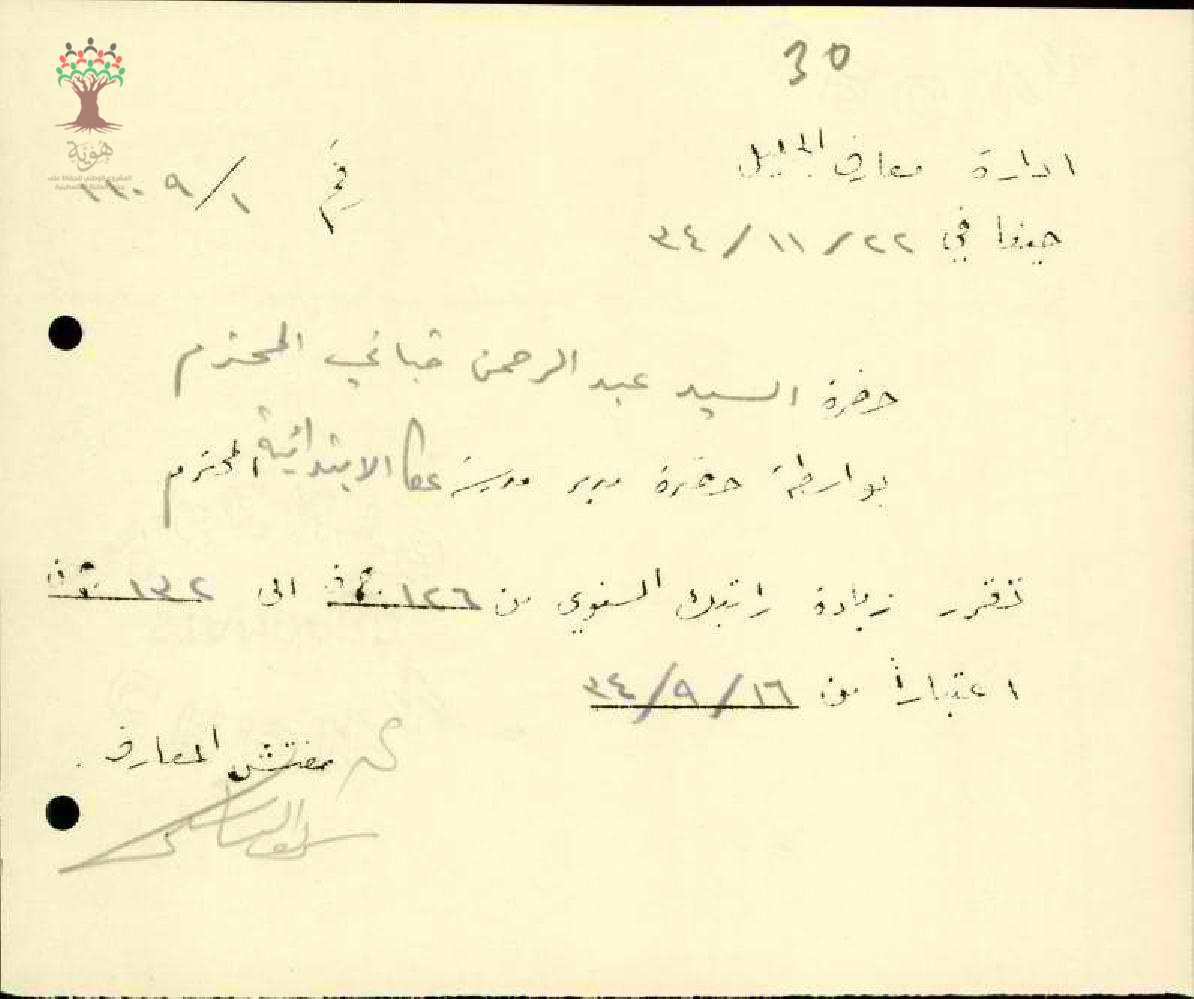 30
ادارة معارف الجليل
رقم ١/١١٠٩
حيفا في ٢٢/١١/٣٤
حضرة السيد عبد الرحمن قباني المحترم
بواسطة حضرة مدير مدرسة عكا الابتدائية المحترم
تقرر زيادة راتبك السنوي من ١٢٦ جـ ف الى ١٣٢ جـ ف
اعتباراً من ١٦/٩/٣٤
مفتش المعارف
هوية
المشروع الوطني للحفاظ على
جذور العائلة الفلسطينية